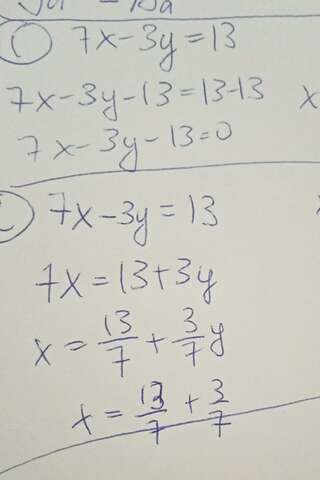 7x-3y=13
7x-3y-13=13-13
x
7x-3y-13=0
7x-3y=13
7x=13+3y
x = 13/7 + 3/7 y
x = 13/7 + 3/7